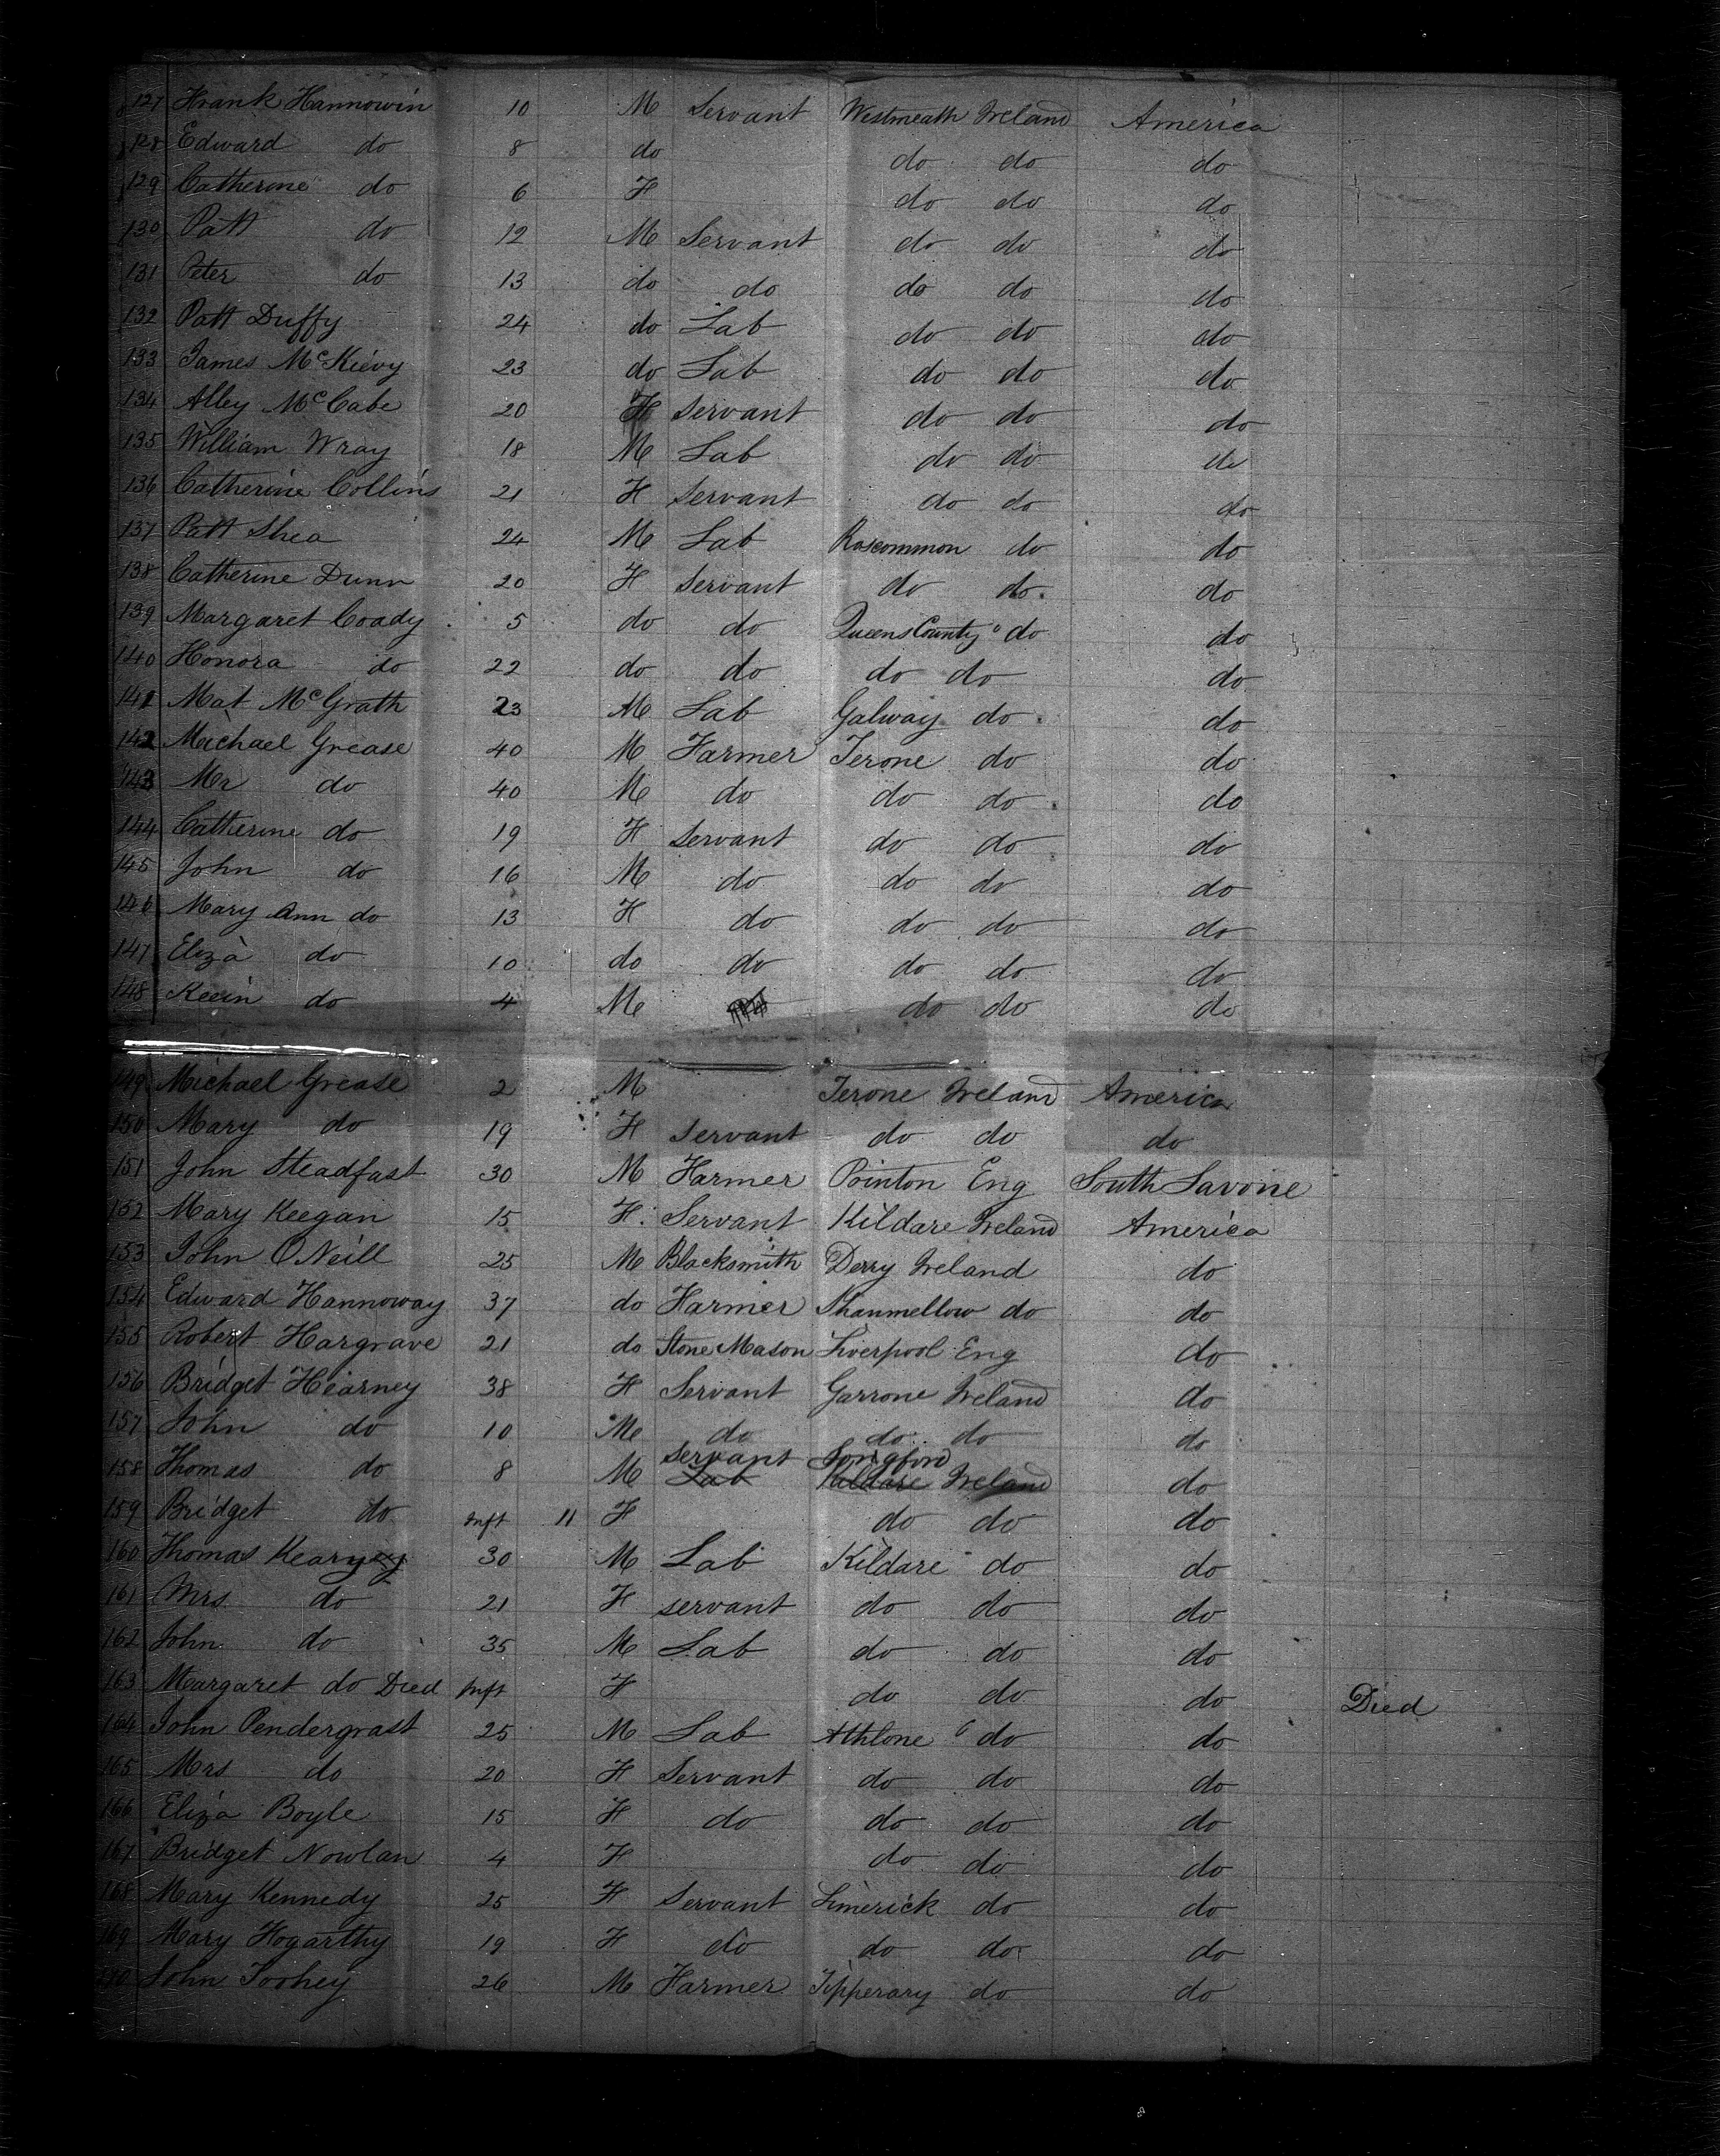 127 Frank Hannowin 10 M Servant Westmeath Ireland America
128 Edward do 8 do do do do
129 Catherine do 6 F do do do
130 Patt do 12 M Servant do do do
131 Peter do 13 do do do do do
132 Patt Duffy 24 do Lab do do do
133 James McKievy 23 do Lab do do do
134 Alley McCabe 20 F Servant do do do
135 William Wray 18 M Lab do do do
136 Catherine Collins 21 F Servant do do do
137 Patt Shea 24 M Lab Roscommon do do
138 Catherine Dunn 20 F Servant do do do
139 Margaret Coady 5 do do Queens County do do
140 Honora do 22 do do do do do
141 Mat McGrath 23 M Lab Galway do do
142 Michael Grease 40 M Farmer Terone do do
143 Mr do 40 M do do do do
144 Catherine do 19 F Servant do do do
145 John do 16 M do do do do
146 Mary Ann do 13 F do do do do
147 Eliza do 10 do do do do do
148 Kevin do 4 M do do do
149 Michael Grease 2 M Terone Ireland America
150 Mary do 19 F Servant do do do
151 John Steadfast 30 M Farmer Pointon Eng South Savone
152 Mary Keegan 15 F Servant Kildare Ireland America
153 John ONeill 25 M Blacksmith Derry Ireland do
154 Edward Hannoway 37 do Farmer Shanmellow do do
155 Robert Hargrave 21 do Stone Mason Liverpool Eng do
156 Bridget Hearney 38 F Servant Garrone Ireland do
157 John do 10 M do do do do
Servant Longford
158 Thomas do 8 M Lab Kildare Ireland do
159 Bridget do Inft 11 F do do do
160 Thomas Kearney 30 M Lab Kildare do do
161 Mrs do 21 F servant do do do
162 John do 35 M Lab do do do
163 Margaret do Died Inft F do do do Died
164 John Pendergrast 25 M Lab Athlone do do
165 Mrs do 20 F Servant do do do
166 Eliza Boyle 15 F do do do do
167 Bridget Nowlan 4 F do do do
168 Mary Kennedy 25 F Servant Limerick do do
169 Mary Hogarthy 19 F do do do do
170 John Toohey 26 M Farmer Tipperary do do